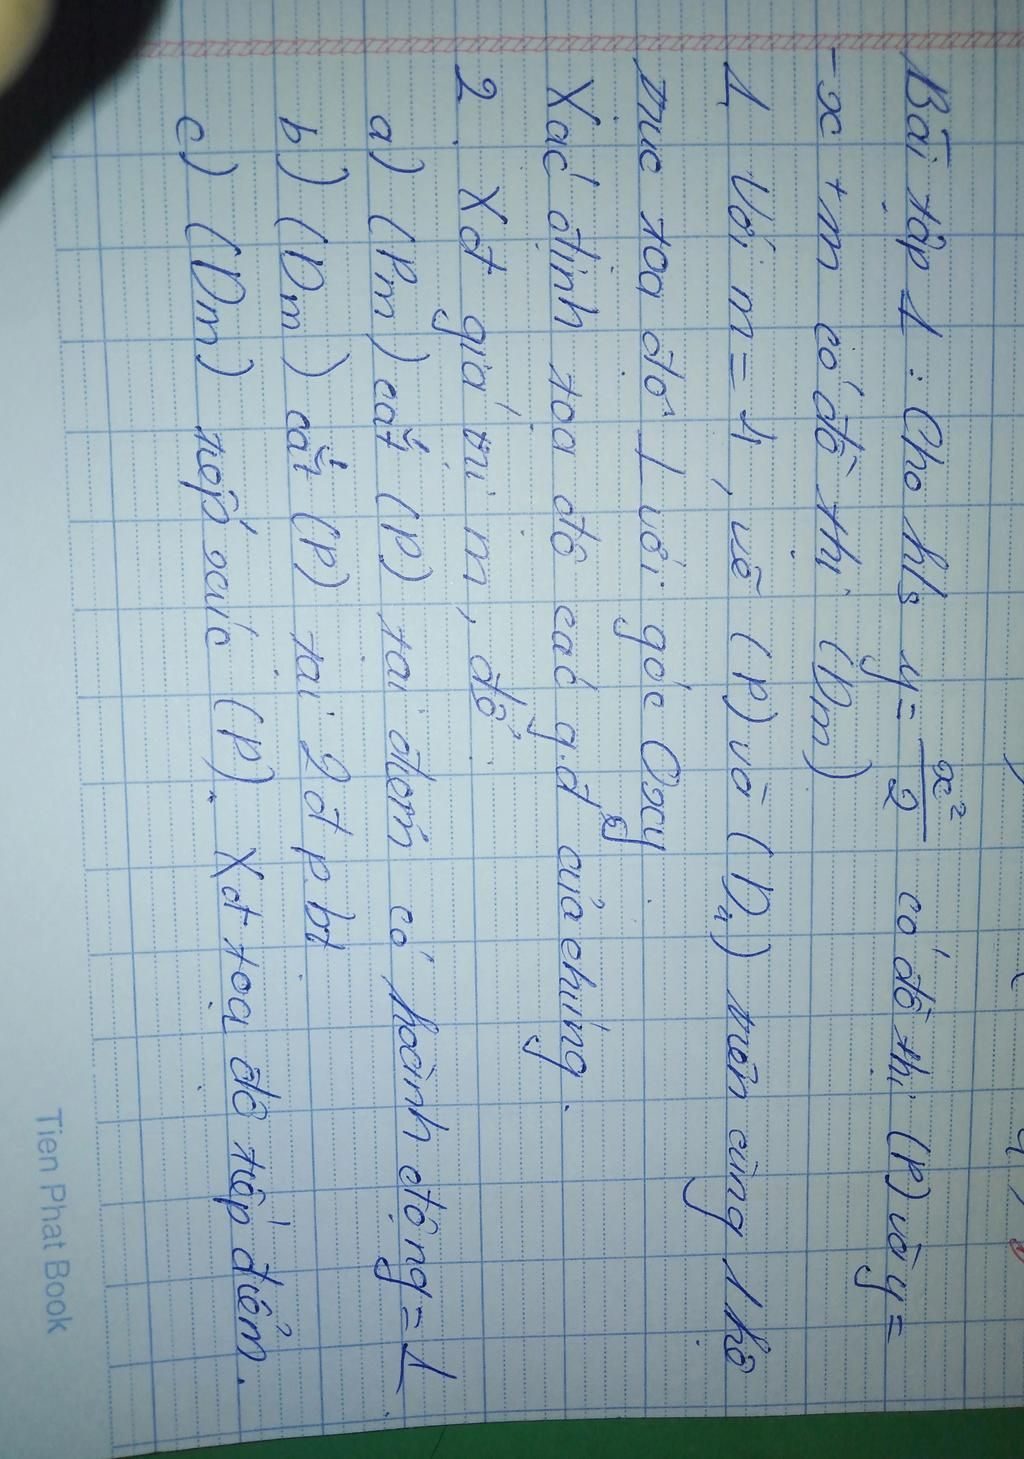 Bài tập 1 : Cho h/s y = x²/2 có đồ thị (P) và y =
-x + m có đồ thị (Dm)
1, Với m = 4, vẽ (P) và (D₄) trên cùng 1 hệ
trục toạ độ ⊥ với gốc Oxy
Xác định toạ độ các g.đ' của chúng.
2. Xđ giá trị m, để
a) (Pm) cắt (P) tại điểm có hoành độ ng = 1
b) (Dm) cắt (P) tại 2 đ' p.bt
c) (Dm) tiếp xúc (P). Xđ toạ độ tiếp điểm.
Tien Phat Book